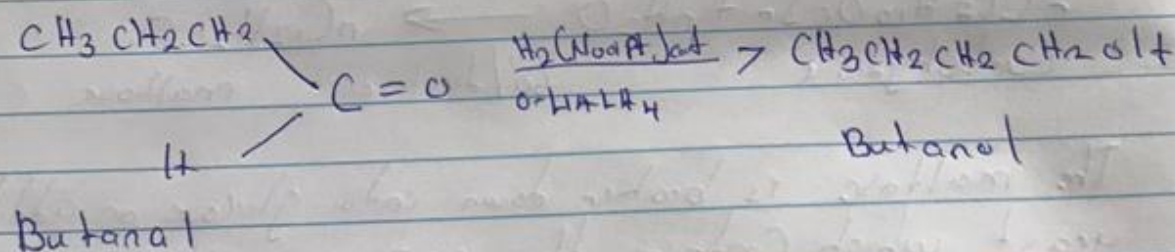 CH3 CH2 CH2
C = O
H
H2 (Ni or Pt) cat > CH3 CH2 CH2 CH2 OH
Butanol
Butanal